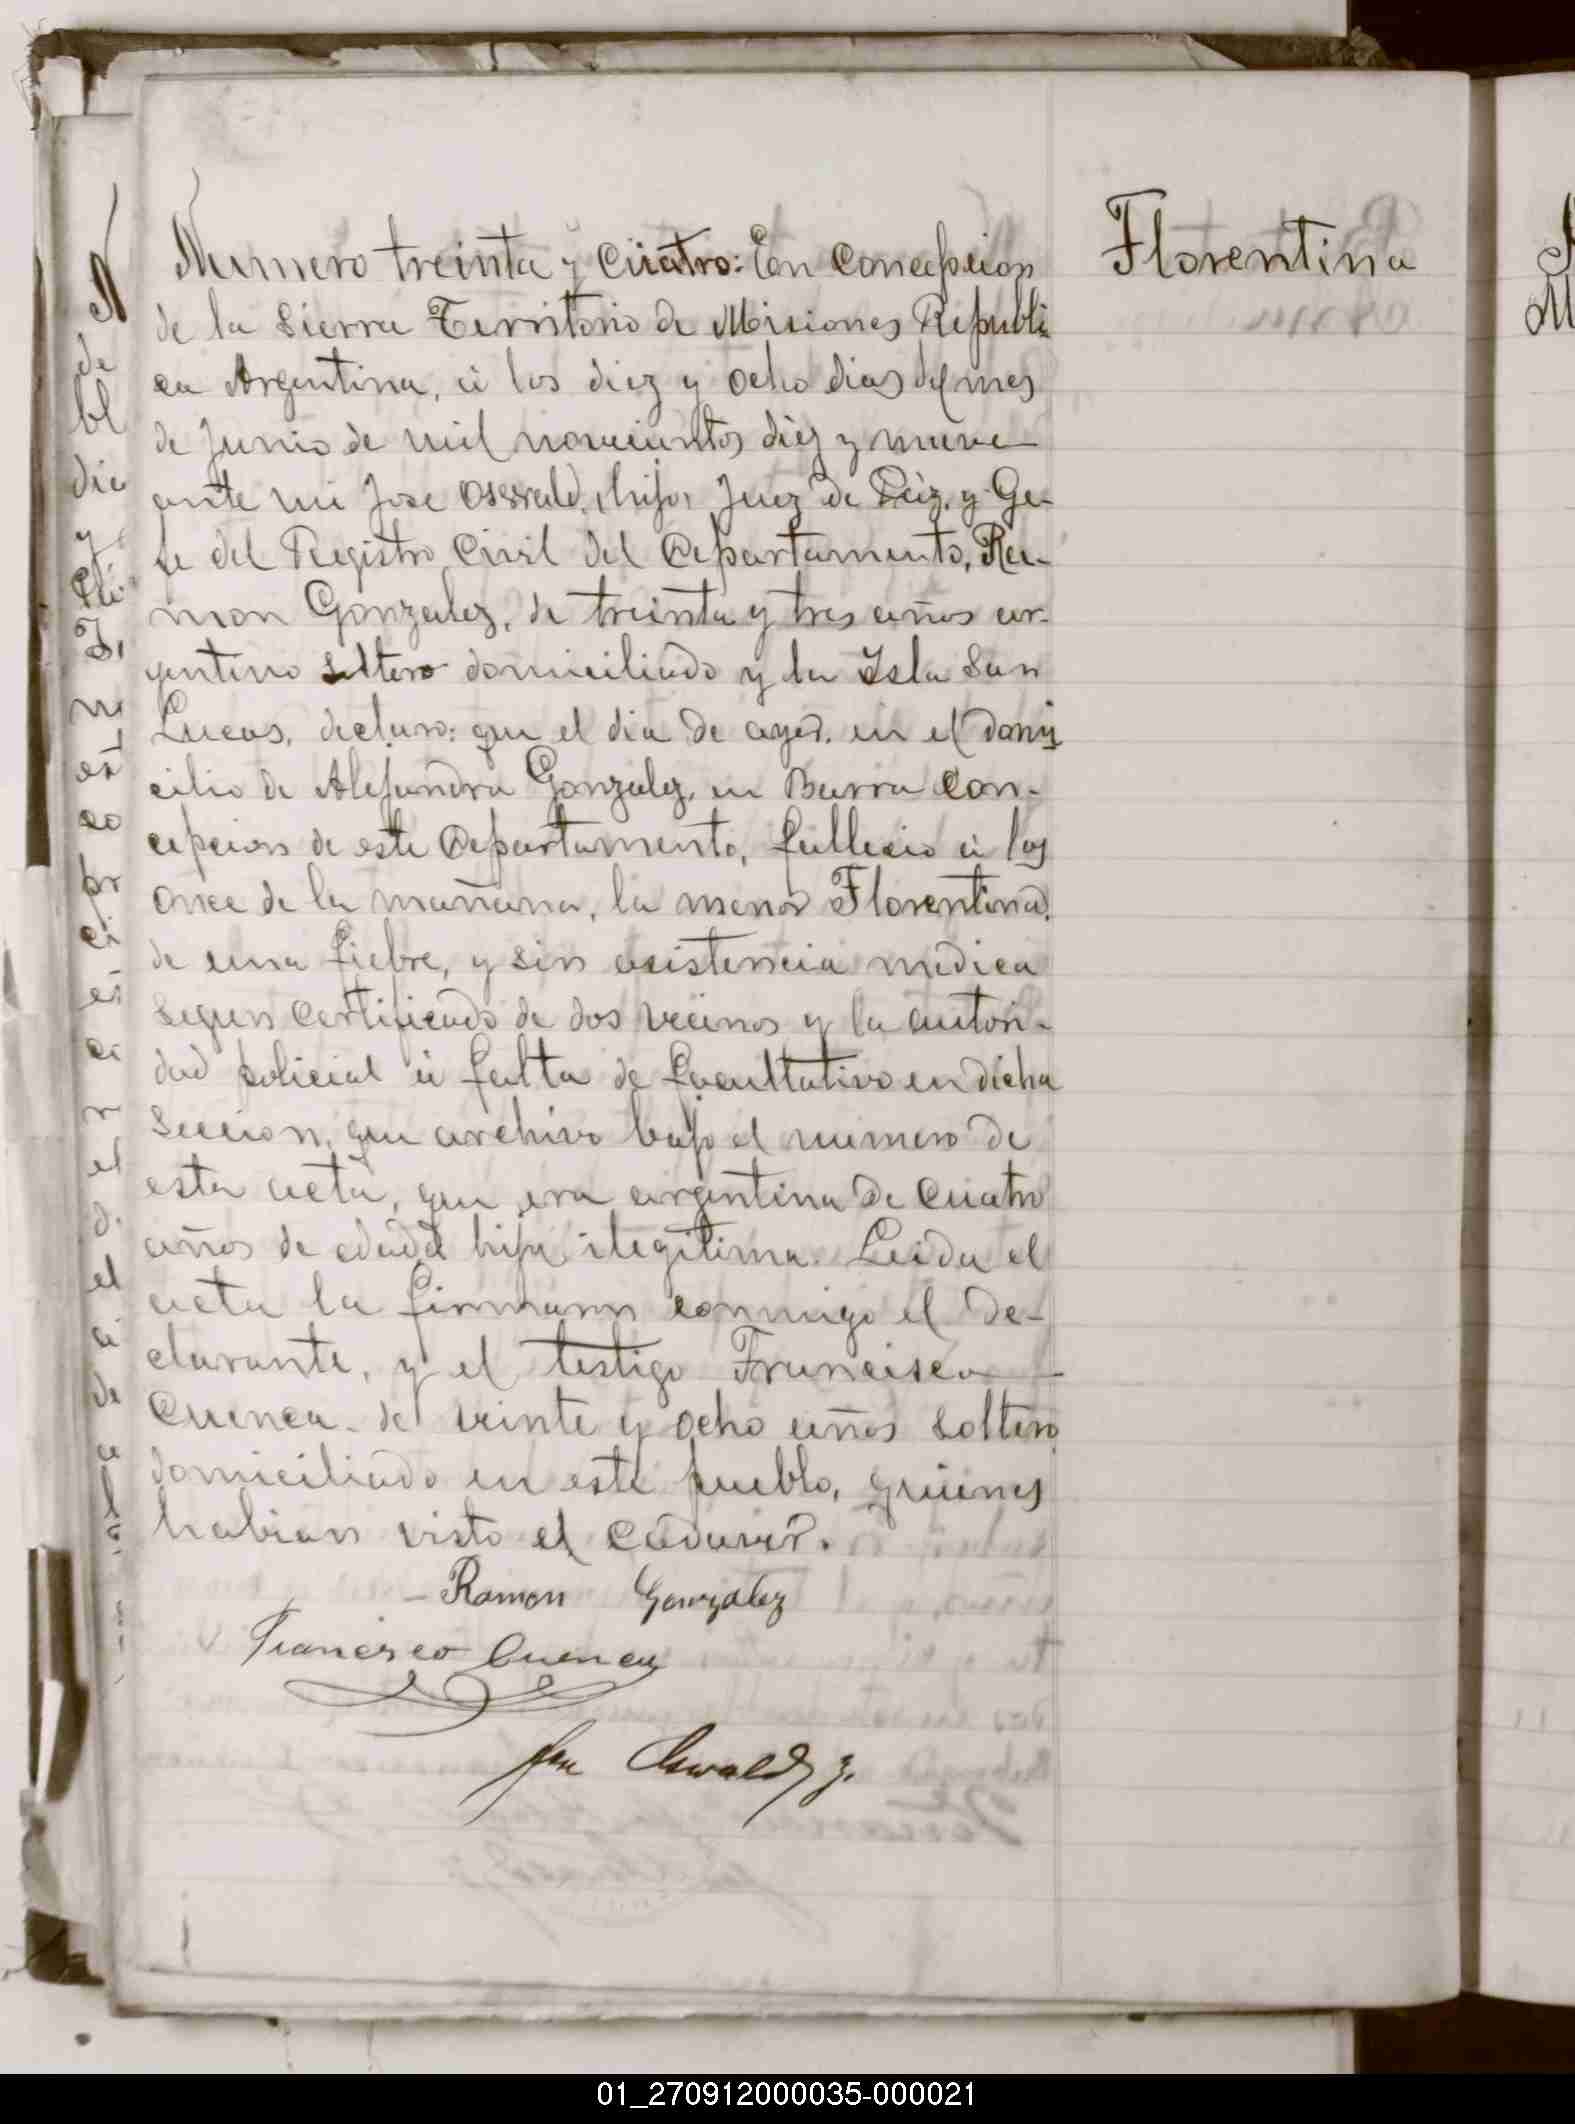 Numero treinta y cuatro: En Concepcion
de la Sierra Territorio de Misiones Republi
ca Argentina, á los diez y ocho dias del mes
de Junio de mil novecientos diez y nueve
ante mi Jose Osswald, hijo, Juez de Paz, y Ge-
fe del Registro Civil del Departamento, Ra-
mon Gonzalez, de treinta y tres años ar-
gentino soltero domiciliado y la Isla San
Lucas, declaro: que el dia de ayer, en el domi
cilio de Alejandra Gonzalez, en Barra Con-
cepcion de este Departamento, fallecio á las
once de la mañana, la menor Florentina,
de una fiebre, y sin asistencia medica
segun certificado de dos vecinos y la autori-
dad policial á falta de facultativo en dicha
seccion, que archivo bajo el numero de
esta acta, que era argentina de cuatro
años de edad, hija ilegitima. Leida el
acta la firmaron conmigo el de-
clarante, y el testigo Francisco
Cuenca de veinte y ocho años soltero
domiciliado en este pueblo, quienes
habian visto el cadaver.
Ramon Gonzalez
Francisco Cuenca
Jose Oswald
Florentina
01_270912000035-000021